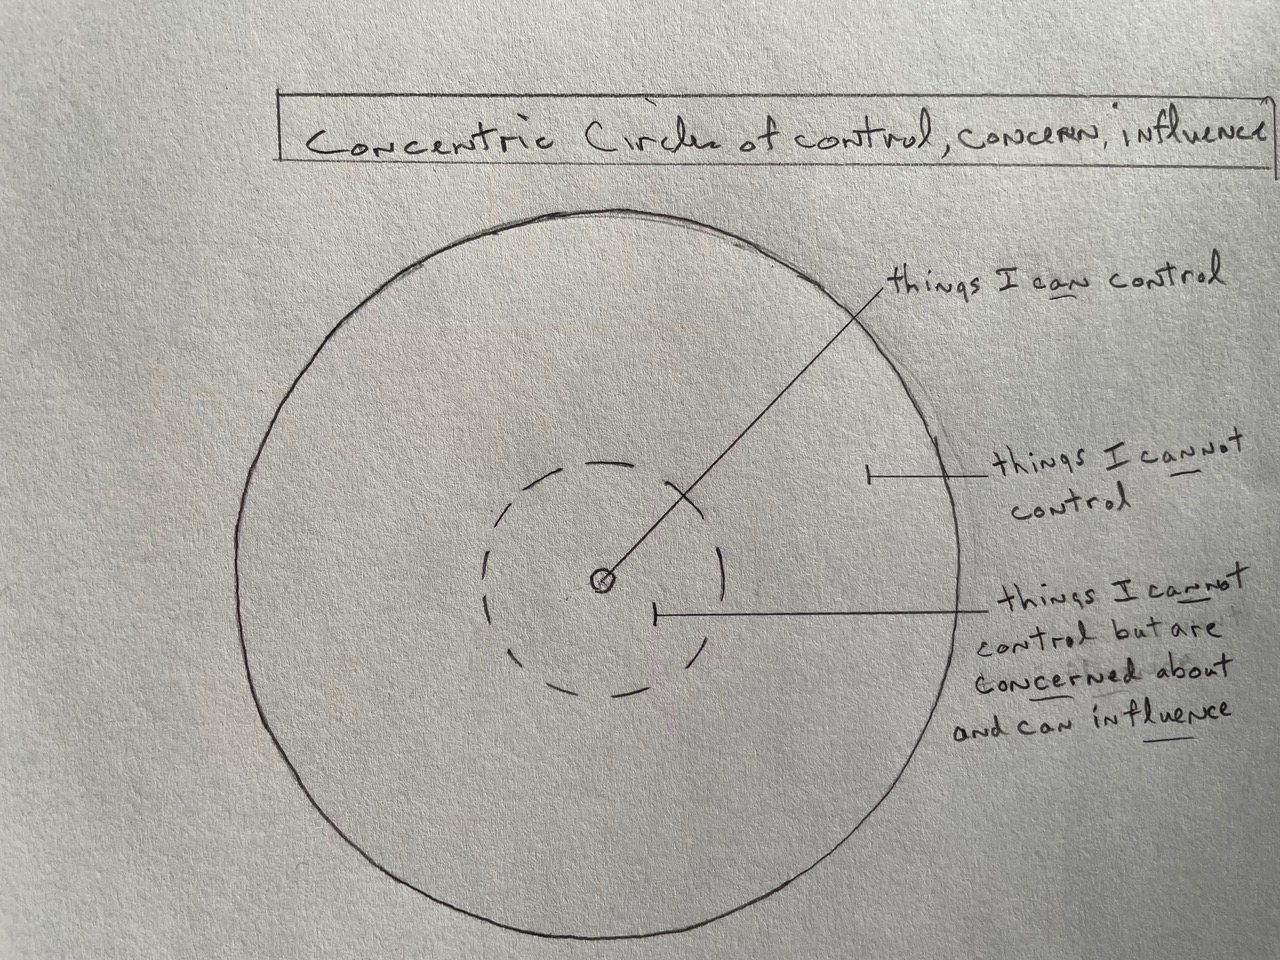 Concentric Circles of control, concern, influence
things I can control
things I cannot
control
things I cannot
control but are
concerned about
and can influence